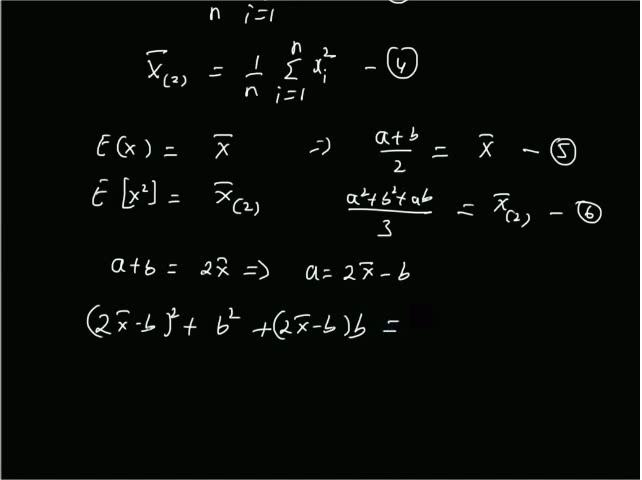 n i=1
x̄(2) = 1/n Σ_{i=1}^{n} xᵢ² — ④
E(x) = x̄ ⇒ (a+b)/2 = x̄ — ⑤
E[x²] = x̄(2) (a²+b²+ab)/3 = x̄(2) — ⑥
a+b = 2x̄ ⇒ a = 2x̄ − b
(2x̄−b)² + b² + (2x̄−b)b =